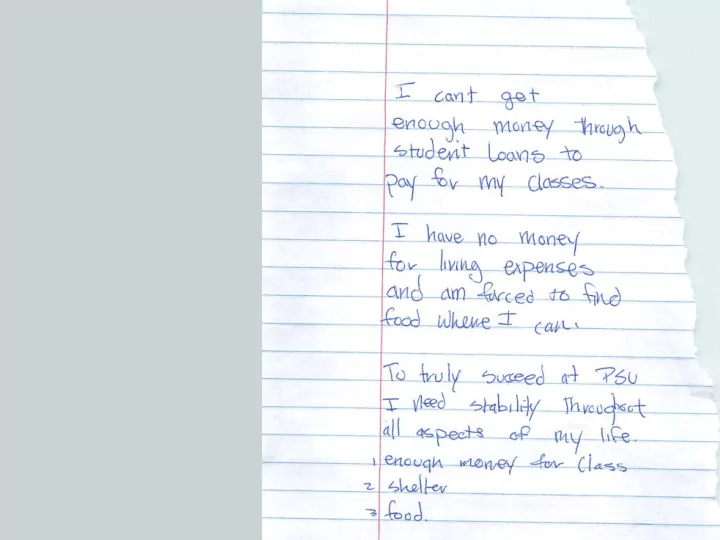 I cant get
enough money through
student loans to
pay for my classes.
I have no money
for living expenses
and am forced to find
food where I can.
To truly succeed at PSU
I need stability throughout
all aspects of my life.
1 enough money for class
2 shelter
3 food.